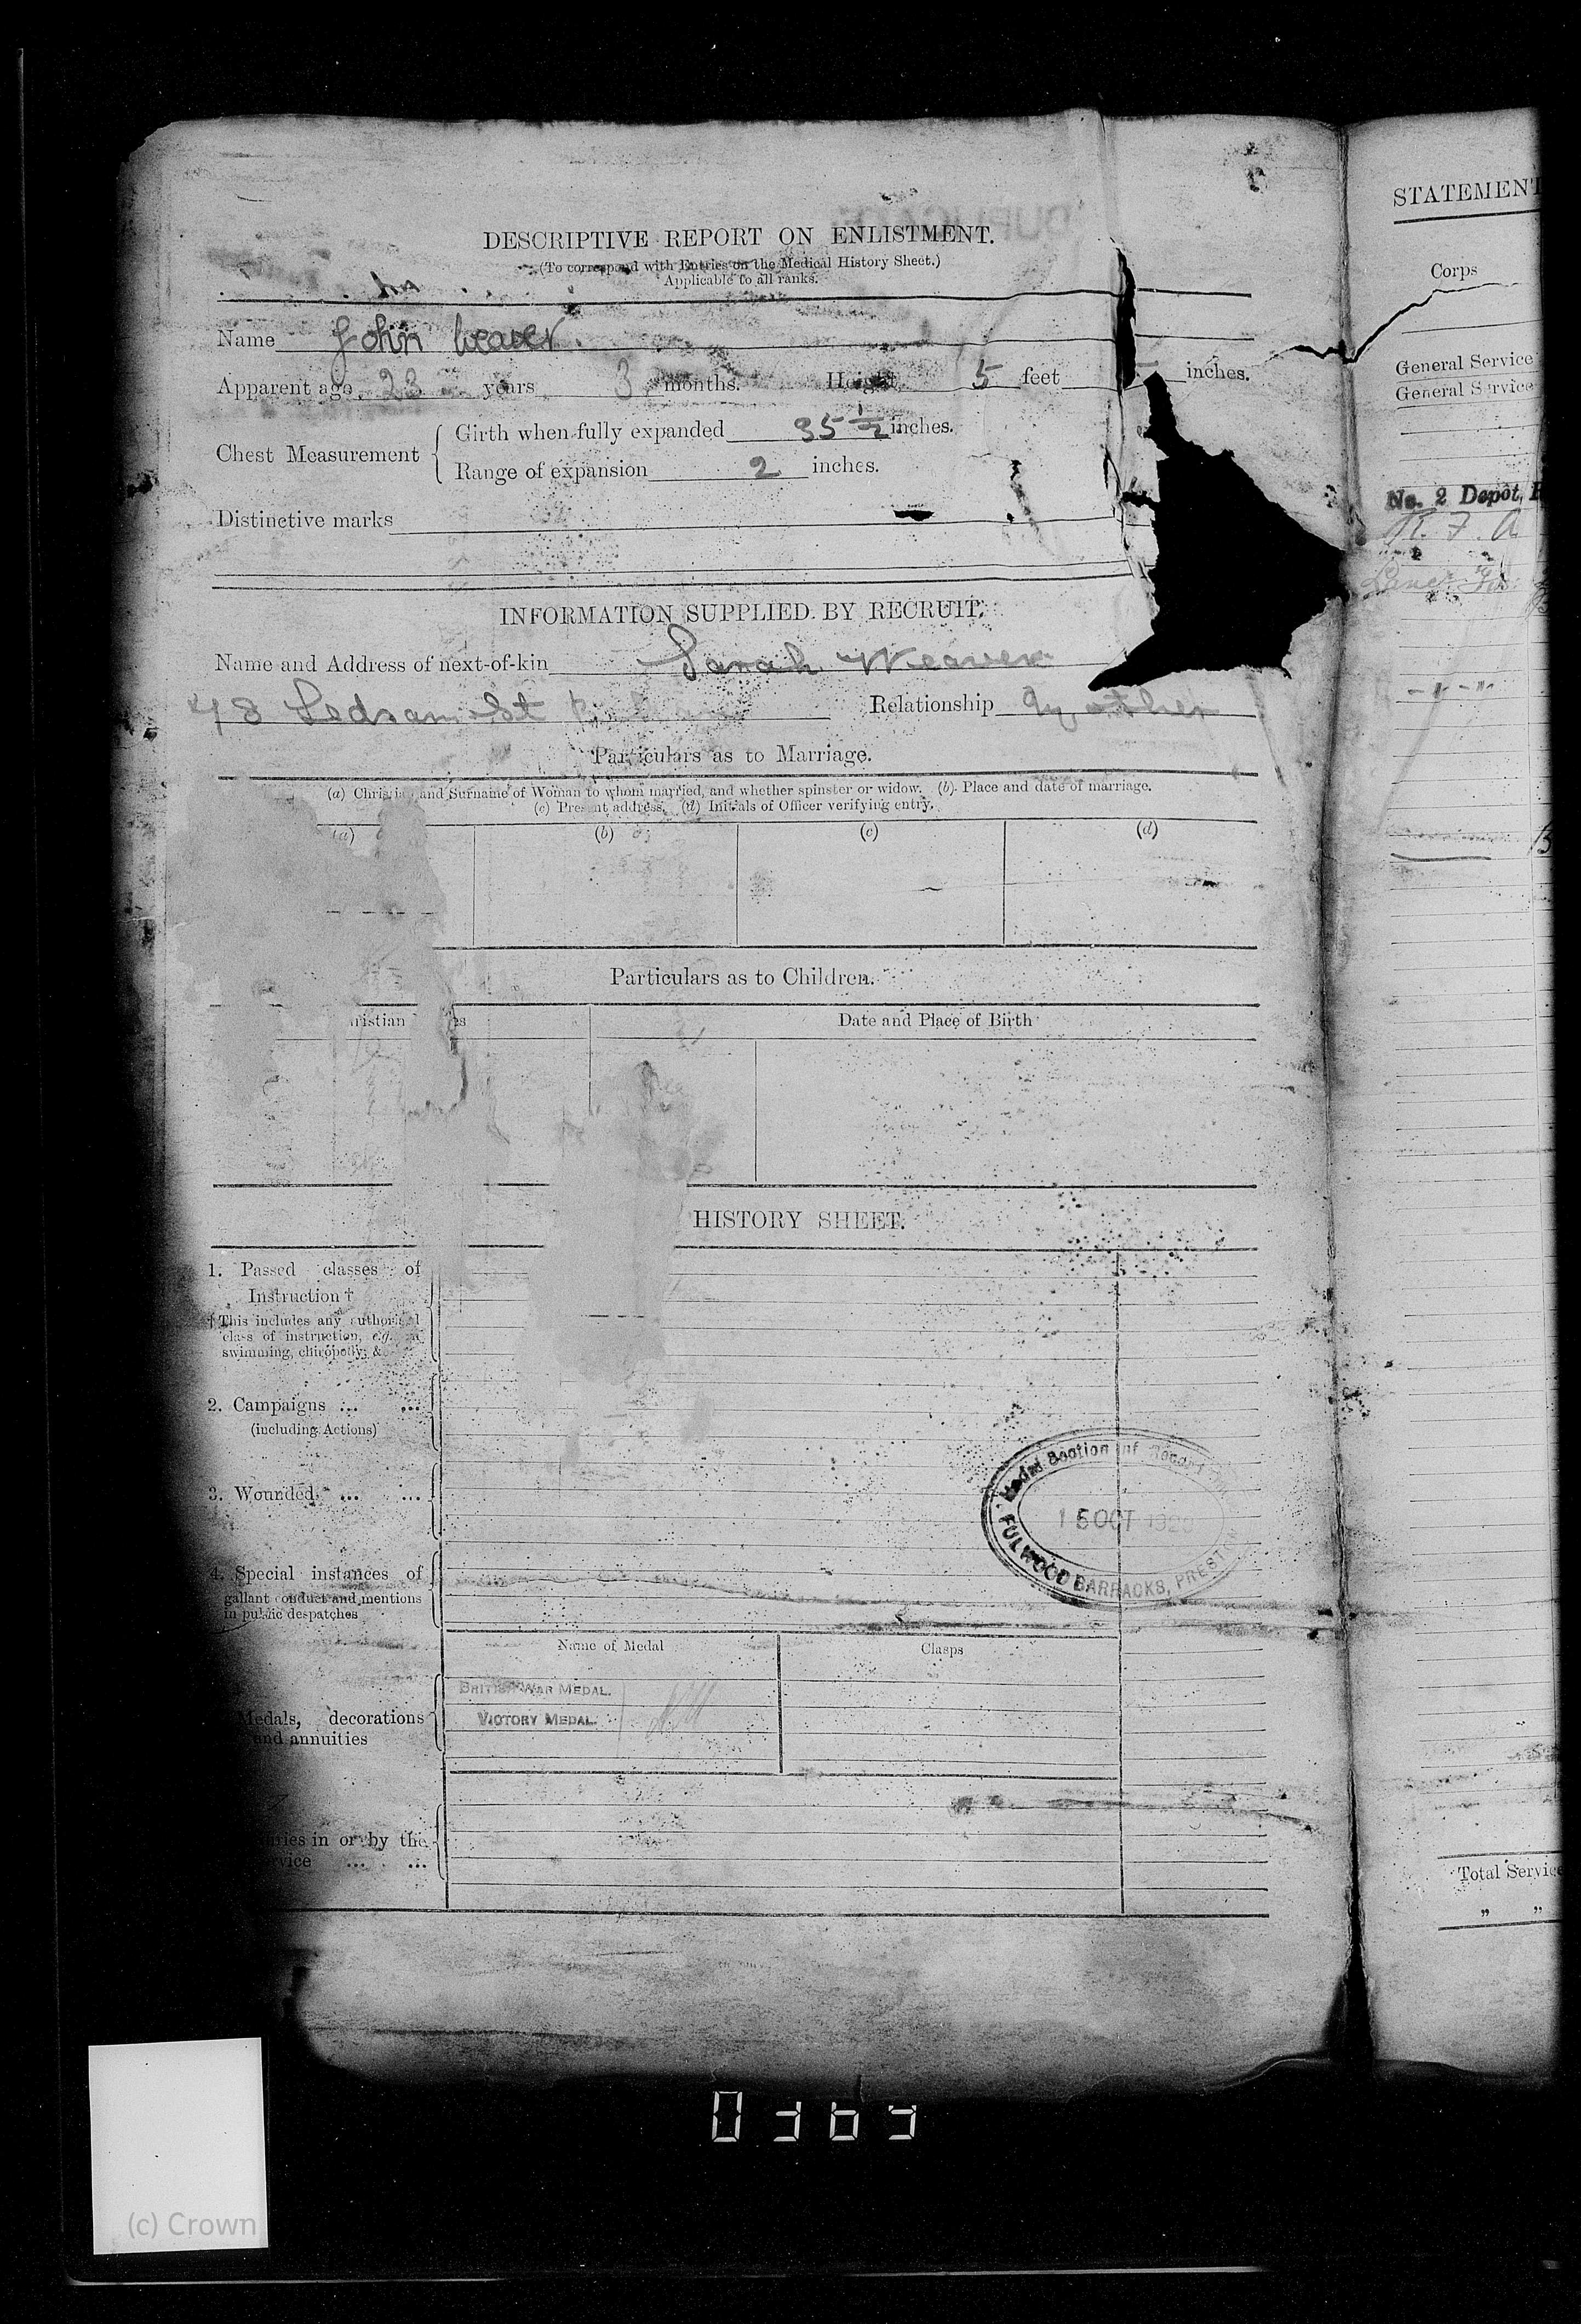 DESCRIPTIVE REPORT ON ENLISTMENT.
(To correspond with Entries on the Medical History Sheet.)
Applicable to all ranks.
Name John Weaver.
Apparent age 23 years 3 months. Height 5 feet inches.
Chest Measurement
Girth when fully expanded 35 1/2 inches.
Range of expansion 2 inches.
Distinctive marks
INFORMATION SUPPLIED BY RECRUIT.
Name and Address of next-of-kin Sarah Weaver
48 Ledsam St Relationship Mother
Particulars as to Marriage.
(a) Christian and Surname of Woman to whom married, and whether spinster or widow. (b) Place and date of marriage.
(c) Present address. (d) Initials of Officer verifying entry.
(a) (b) (c) (d)
Particulars as to Children.
ristian es Date and Place of Birth
HISTORY SHEET.
1. Passed classes of
Instruction †
† This includes any authorised
class of instruction, e.g.
swimming, chiropody, &
2. Campaigns ... ...
(including Actions)
3. Wounded ... ...
4. Special instances of
gallant conduct and mentions
in public despatches
Name of Medal Clasps
BRITISH WAR MEDAL.
VICTORY MEDAL.
Medals, decorations
and annuities
uries in or by the
vice ... ...
Medal Section Inf Record
15 OCT 192
FULWOOD BARRACKS, PRESTON
STATEMENT
Corps
General Service
General Service
No. 2 Depot, R
R. F. A
Total Service
„ „
0363
(c) Crown